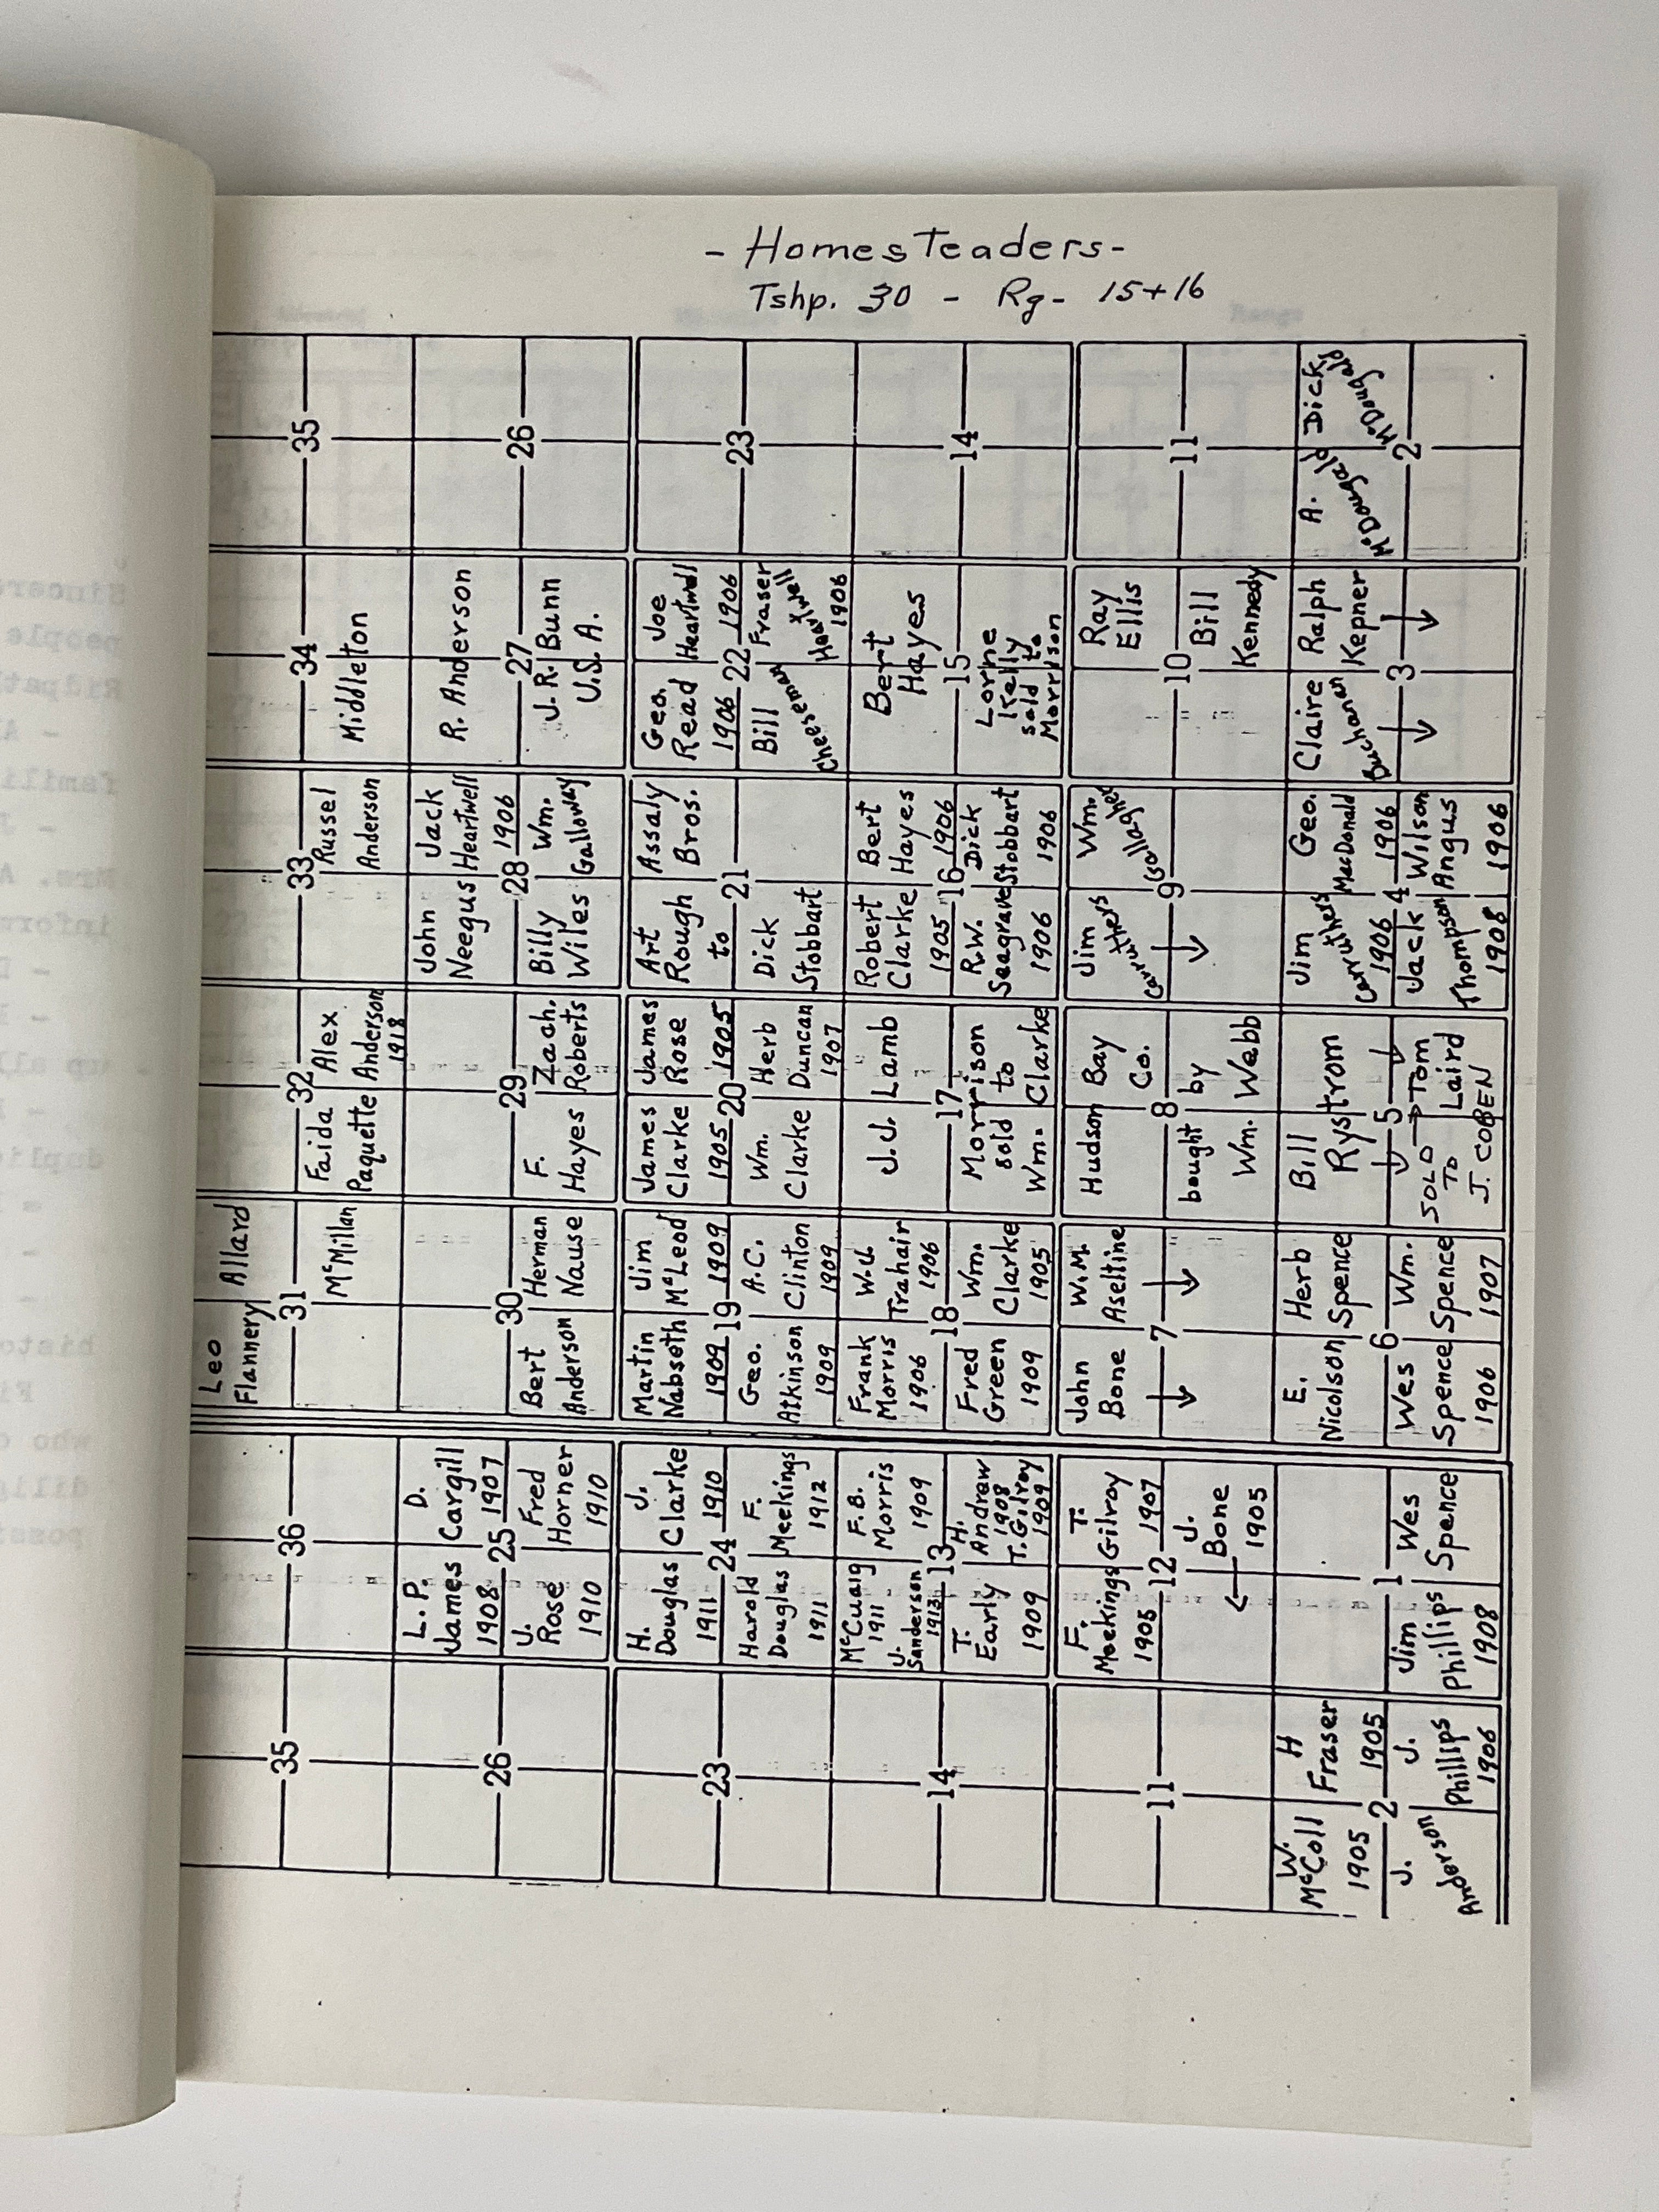 - HomesTeaders -
Tshp. 30 - Rg- 15+16
35
36
Leo
Flannery
Allard
31
McMillan
32
Faida
Paquette
Alex
Anderson
1918
33
Russel
Anderson
34
Middleton
35
26
L.P.
James
1908
D.
Cargill
1907
25
J.
Rose
1910
Fred
Horner
1910
30
Bert
Anderson
Herman
Nause
29
F.
Hayes
Zach.
Roberts
John
Neegus
Jack
Heartwell
1906
28
Billy
Wiles
Wm.
Galloway
R. Anderson
27
J.R. Bunn
U.S.A.
26
23
H.
Douglas
1911
J.
Clarke
1910
24
Harold
Douglas
1911
F.
Meekings
1912
Martin
Nabseth
1909
Jim
McLeod
1909
19
Geo.
Atkinson
1909
A.C.
Clinton
1909
James
Clarke
1905
James
Rose
1905
20
Wm.
Clarke
Herb
Duncan
1907
Art
Rough
to
Assaly
Bros.
21
Dick
Stobbart
Geo.
Read
1906
Joe
Heartwell
1906
22
Bill
Cheeseman
Fraser
x
Heartwell
1906
23
14
McCuaig
1911
J.
Sanderson
1913
F.B.
Morris
1909
13
T.
Early
1909
H.
Andrew
1908
T. Gilroy
1909
Frank
Morris
1906
W.J.
Trahair
1906
18
Fred
Green
1909
Wm.
Clarke
1905
J.J. Lamb
17
Morrison
sold to
Wm. Clarke
Robert
Clarke
1905
Bert
Hayes
1906
16
R.W.
Seagrave
1906
Dick
Stobbart
1906
Bert
Hayes
15
Lorne
Kelly
sold to
Morrison
14
11
F.
Meekings
1905
T.
Gilroy
1907
12
J.
Bone
1905
John
Bone
W.M.
Aseltine
7
Hudson Bay
Co.
8
bought by
Wm. Webb
Jim
Carruthers
Wm.
Gallagher
9
Ray
Ellis
10
Bill
Kennedy
11
W.
McColl
1905
H
Fraser
1905
2
J.
Anderson
J.
Phillips
1906
1
Jim
Phillips
1908
Wes
Spence
E.
Nicolson
Herb
Spence
6
Wes
Spence
1906
Wm.
Spence
1907
Bill
Rystrom
5
SOLD → Tom
TO Laird
J. COBEN
Jim
Carruthers
1906
Geo.
MacDonald
1906
4
Jack
Thompson
1908
Wilson
Angus
1906
Claire
Buchanan
Ralph
Kepner
3
A.
McDougald
Dick
McDougald
2